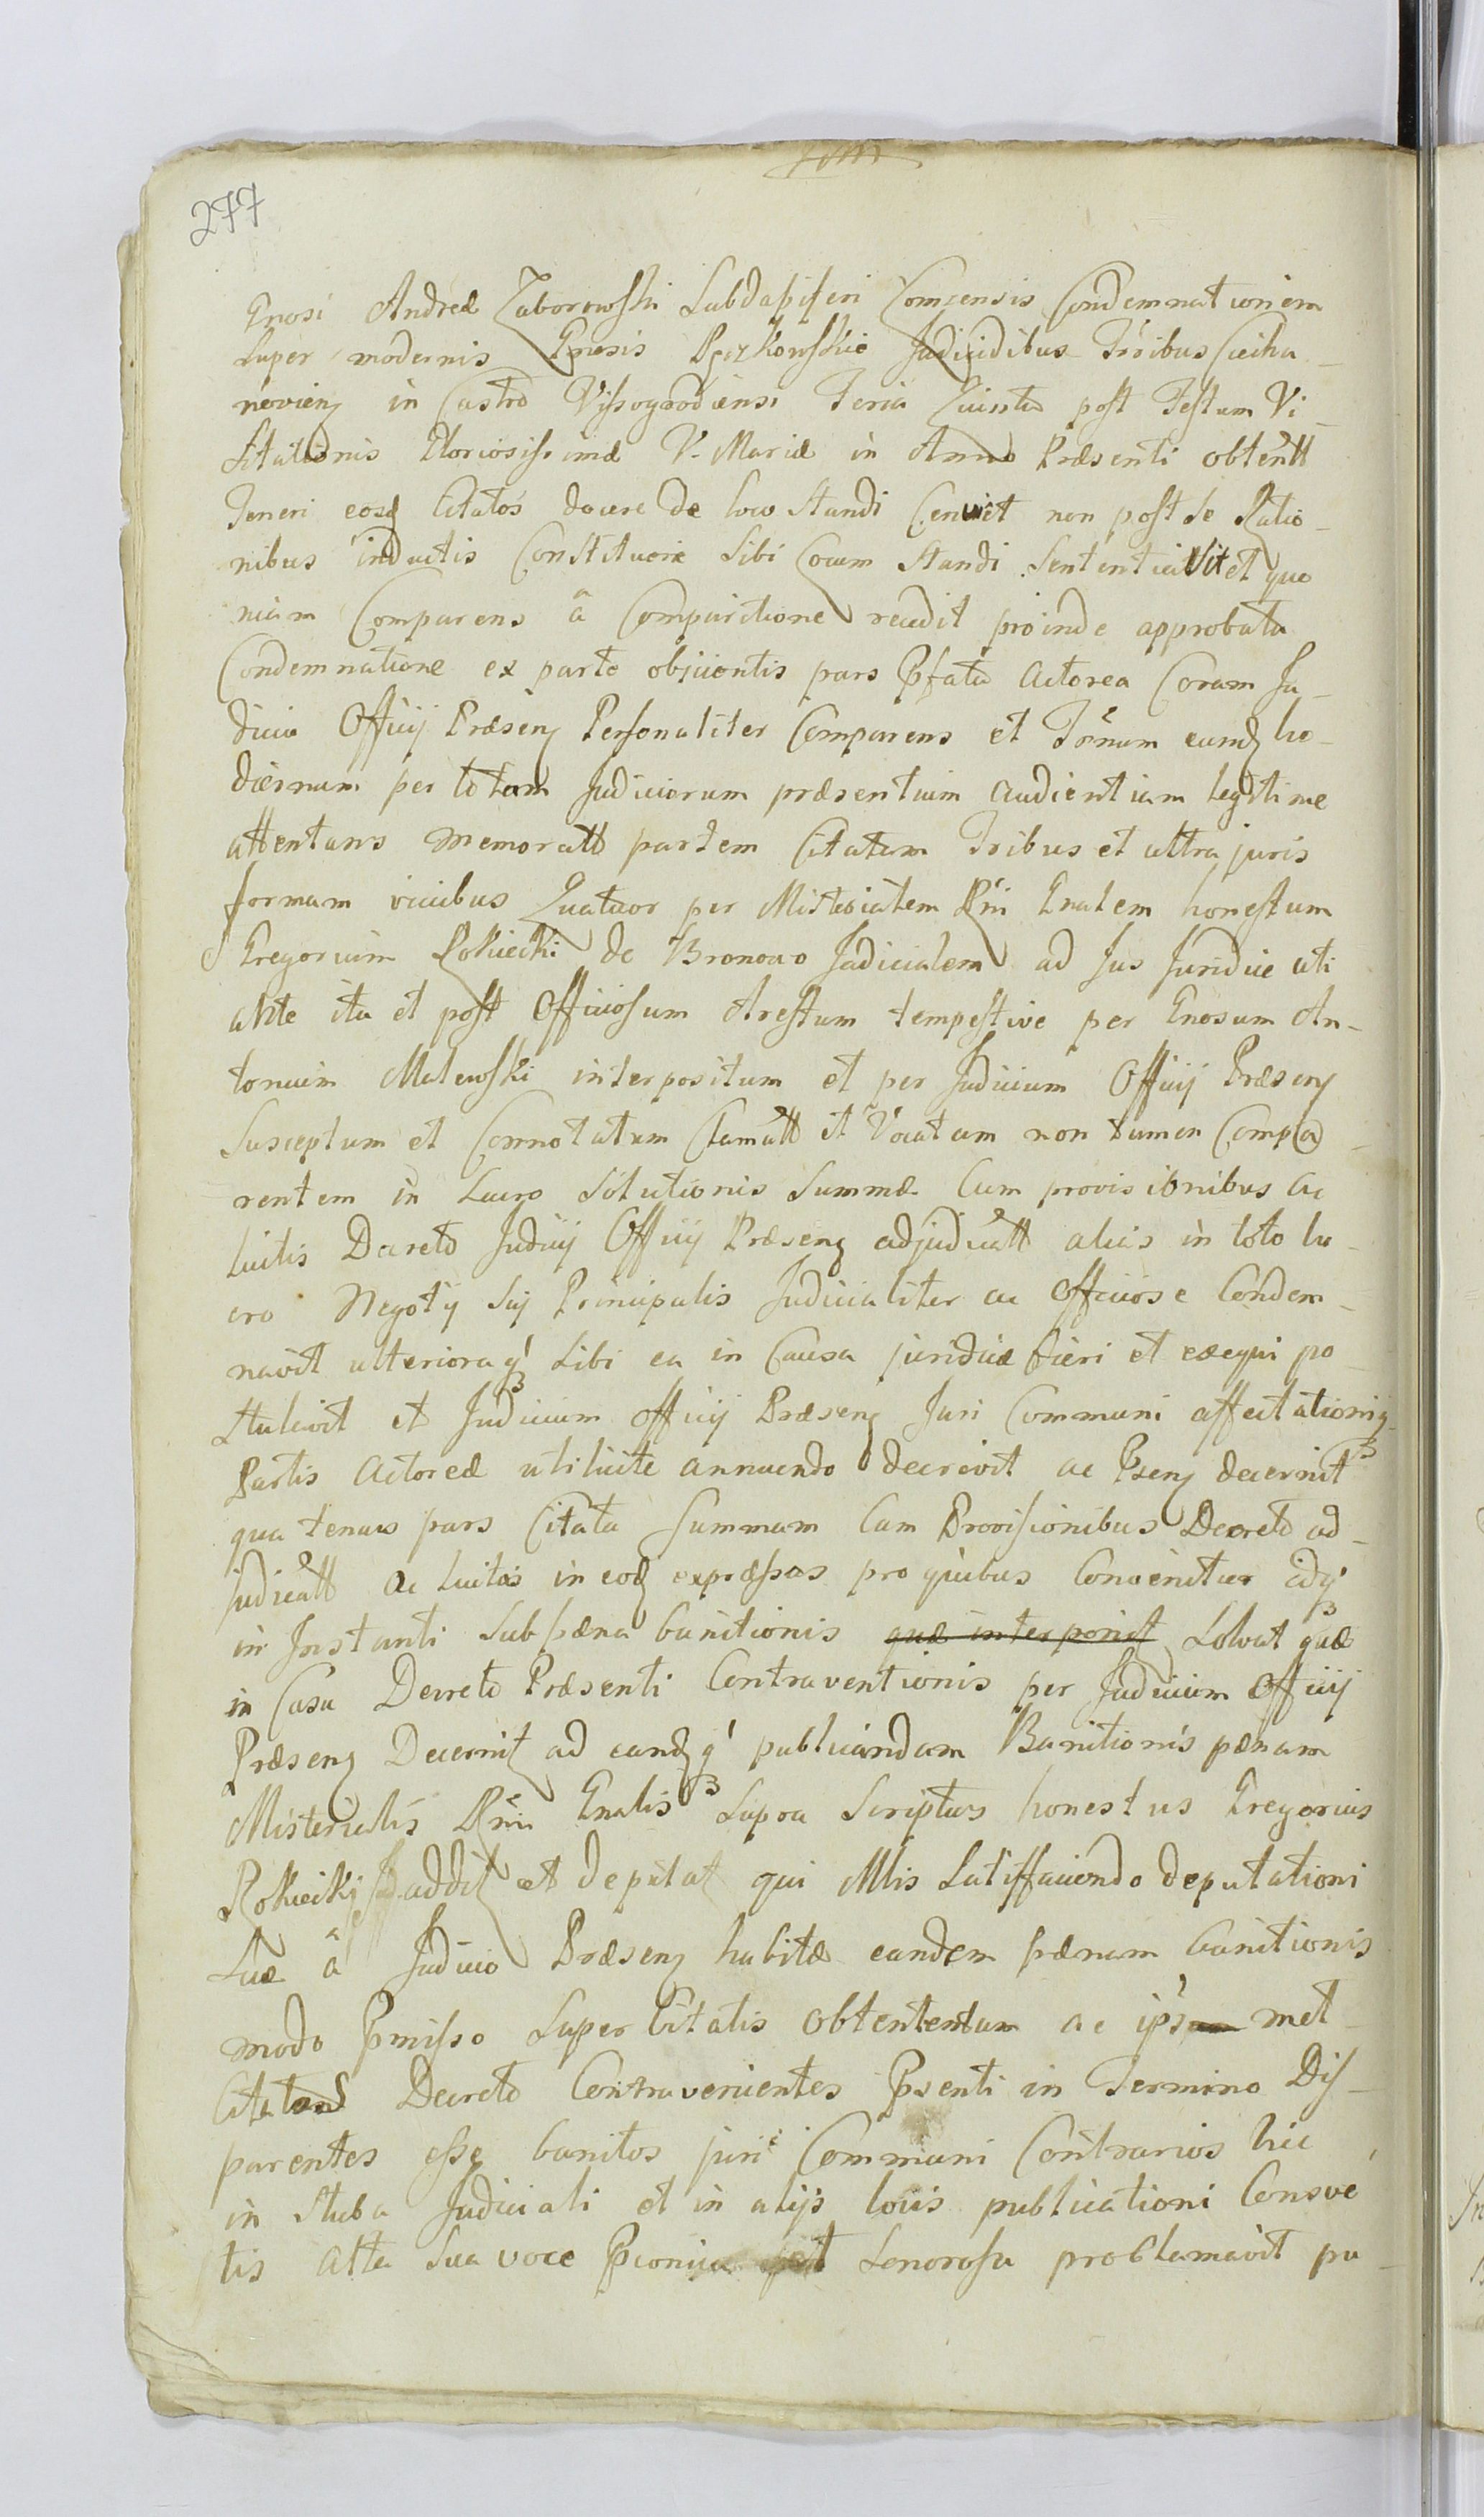 277
Gnosi Andreæ Zaborowski Subdapiferi Lomzensis Condemnationem
Super modernis Gnosis Judicialibus Tribus Ciecha-
novien in Castro Vissogrodiensi Feria Quinta post Festum Vi-
sitationis Gloriosissimæ V. Mariæ in Anno Præsenti obtentt
Teneri eosq Citatos docere de loco Standi Censuit non post se Ratio-
nibus inductis Constituere Sibi Locum Standi Sententiavit et quo
niam Comparens â Comparitione recedit proinde approbata
Condemnatione ex parte objicientis pars Pfata Actorea Coram Ju-
dicio Officij Præsen Personaliter Comparens et Tornum eund ho-
diernum per totam Judiciorum præsentium audientiam legitime
attentans memoratt partem Citatam Tribus et ultra juris
formam vicibus Quatuor per Misterialem Rni Gnalem honestum
Gregorium Rokiecki de Bronowo Judicialem ad Jus Juridice uti
ante ita et post Officiosum Arestum tempestive per Gnosum An-
tonium Malewski interpositum et per Judicium Officij Præsen
Susceptum et Connotatum Clamatt et Vocatum non tamen Compa-
rentem in Lucro Solutionis Summæ Cum provisionibus Ac
luitis Decreto Judicij Officij Præsen adjudicatt alias in toto lu-
cro Negotij Sui Principalis Judicialiter ac Officiose Condem-
navit ulteriora q sibi ea in Causa juridica fieri et exequi po-
stulavit et Judicium officij Præsen Juri Communi affectationiq
Partis Actoreæ utilicite annuendo decrevit ac Psen decernit
qua tenus pars Citata Summam Cum Provisionibus Decreto ad-
judicatt ac luitas in eod expressas pro quibus Convenitur idq
in Instanti Sub pæna banitionis quæ interponit Solvat quæ
in Casu Decreto Præsenti Contraventionis per Judicium Officij
Præsen Decernit ad eand q publicandam Banitionis pænam
Misterialis Rni Gnalis Supra Scriptus honestus Gregorius
Rokiecki addit et deputat qui Mlis Satisfaciendo deputationi
Suæ â Judicio Præsen habitæ eandem pænam banitionis
modo Pmisso Super Citatis obtententam ac ipsum met
Citatos Decreto Contravenientes Psenti in Termino Dis-
parentes esse banitos juri Communi Contrarios hic
in Stuba Judiciali et in alijs locis publicationi Consve
tis alta sua voce Sonorosa proclamavit pu-